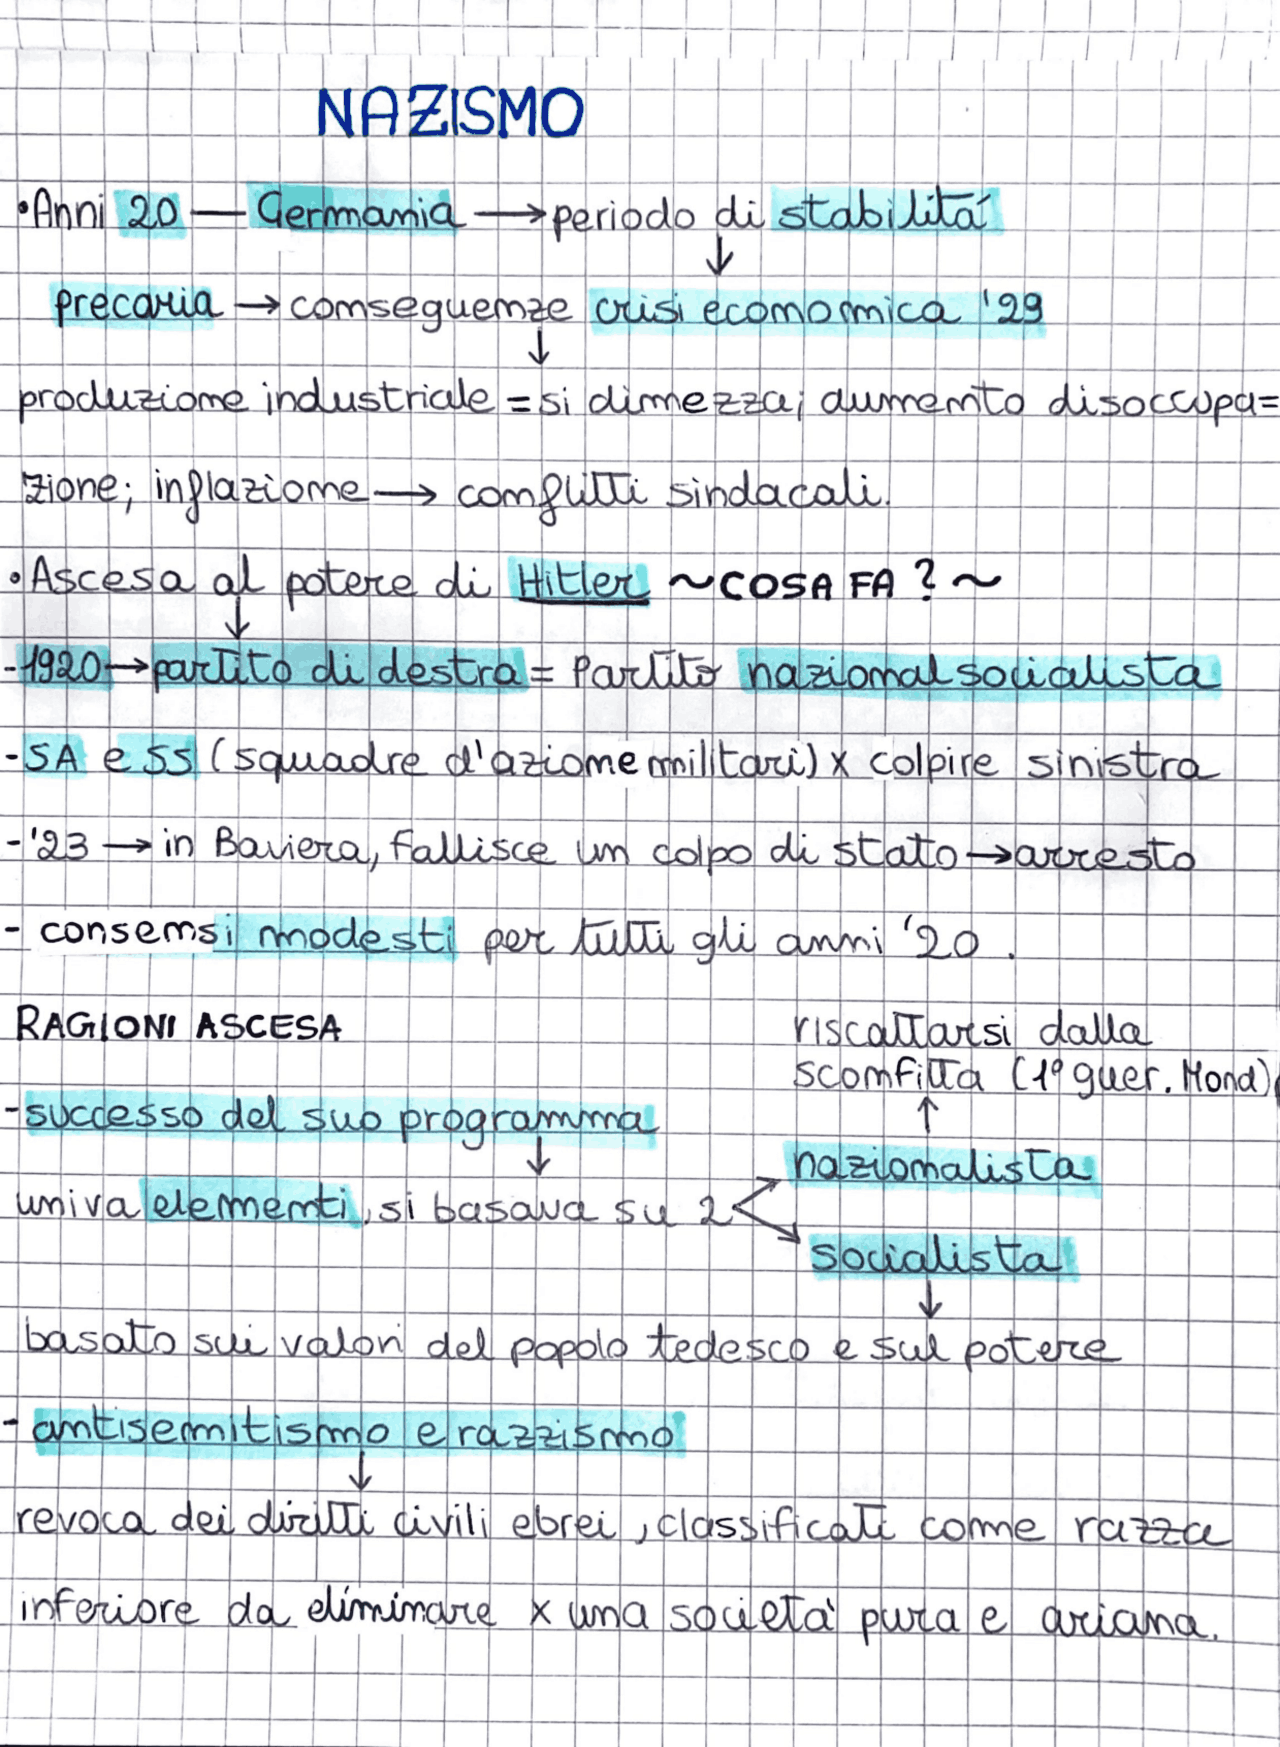 NAZISMO
•Anni 20 — Germania → periodo di stabilitá
↓
precaria → conseguenze crisi economica '29
↓
produzione industriale = si dimezza; aumento disoccupa=
zione; inflazione → conflitti sindacali.
•Ascesa al potere di Hitler ~COSA FA?~
↓
-1920→partito di destra = Partito nazionalsocialista
-SA e SS (squadre d'azione militari) x colpire sinistra
-'23 → in Baviera, fallisce un colpo di stato → arresto
- consensi modesti per tutti gli anni '20.
RAGIONI ASCESA
riscattarsi dalla
sconfitta (1º guer. Mond)
↑
-successo del suo programma
↓
nazionalista
univa elementi, si basava su 2
socialista
↓
basato sui valori del popolo tedesco e sul potere
- antisemitismo e razzismo
↓
revoca dei diritti civili ebrei, classificati come razza
inferiore da eliminare x una società pura e ariana.